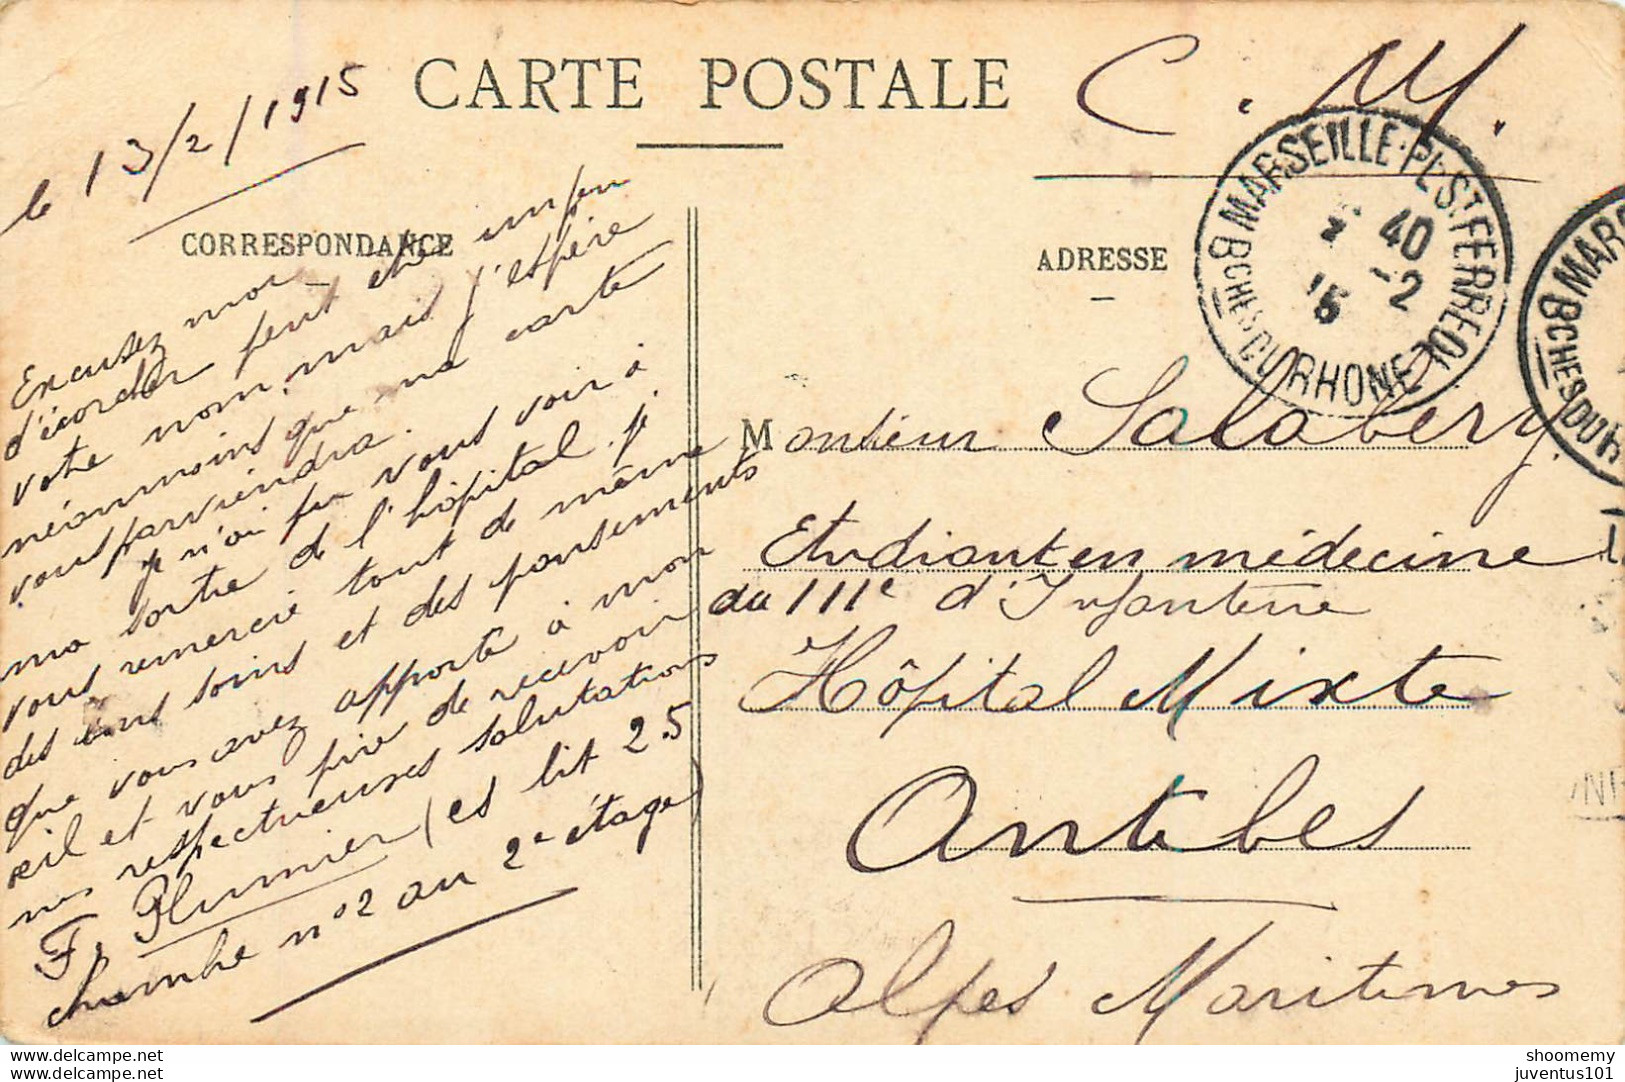 CARTE POSTALE
C. M.
le 13/2/1915
CORRESPONDANCE
ADRESSE
Excusez moi
d'écorcher peut etre un peu
votre nom, mais j'espère
néanmoins que ma carte
vous parviendra.
je n'ai pu vous voir à
ma sortie de l'hôpital. je
vous remercie tout de même
des bons soins et des pansements
que vous avez apporté à mon
œil et vous prie de recevoir
mes respectueuses salutations
F. Plumier (es lit 25
chambre n° 2 au 2e étage)
Monsieur Salabery.
Etudiant en médecine
du 111e d'Infanterie
Hôpital Mixte
Antibes
Alpes Maritimes
MARSEILLE-PL. ST FERREOL
40
15 -2
BCHES DU RHONE
MARS
BCHES DU RH
www.delcampe.net
www.delcampe.net
shoomemy
juventus101